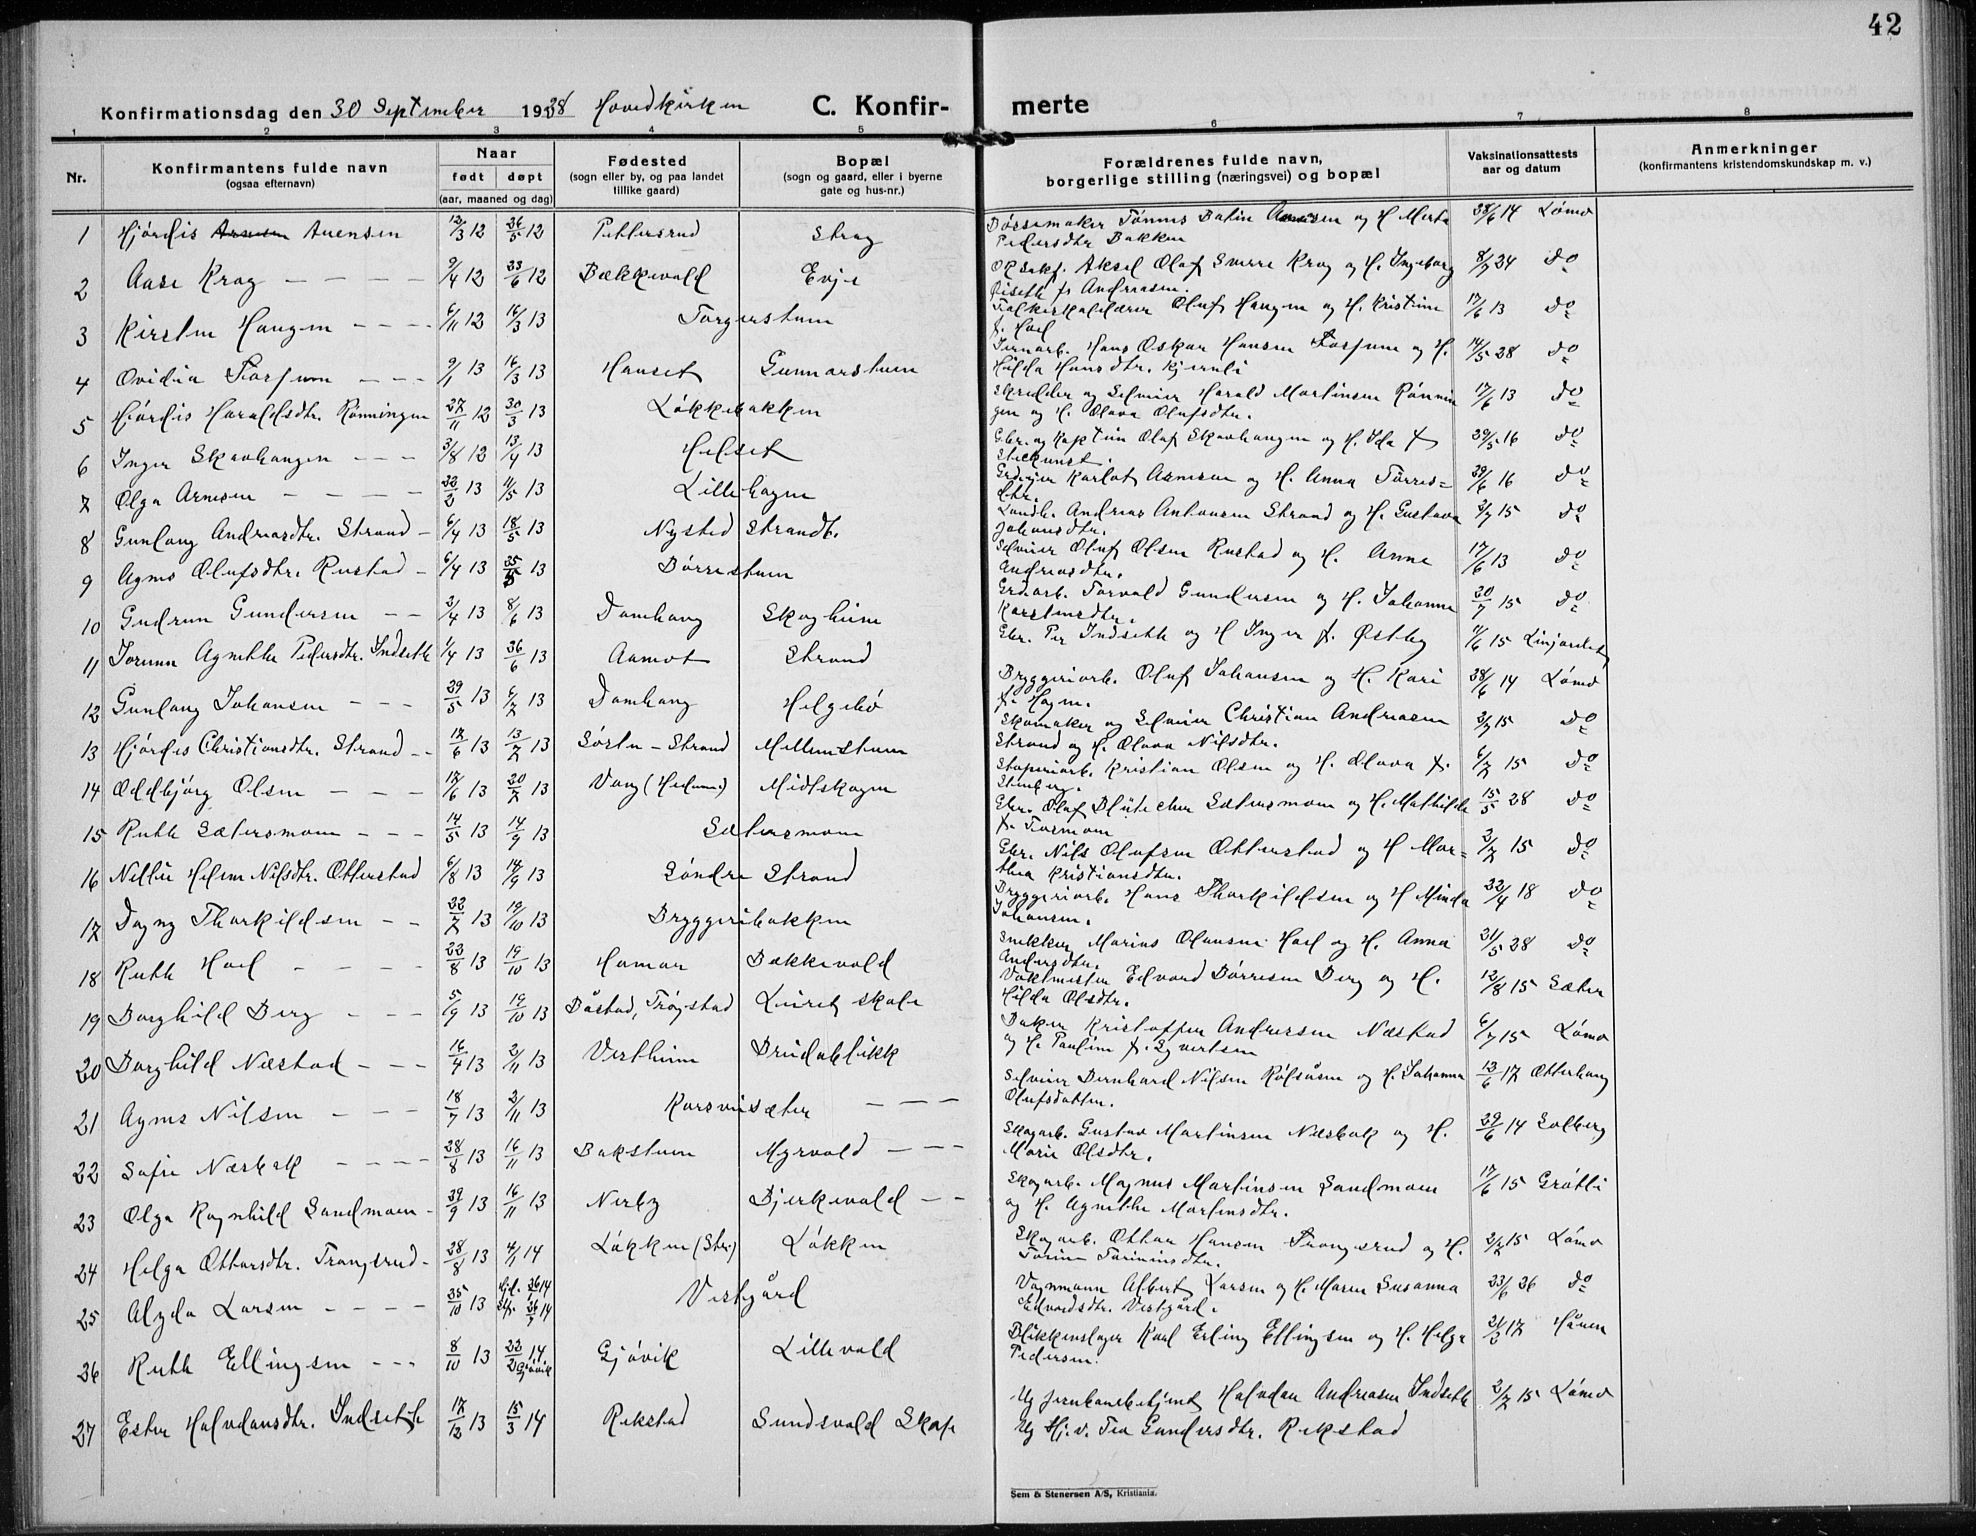 42
Konfirmationsdag den 30 September 1928 Hovedkirken C. Konfir- merte
1 2 3 4 5 6 7 8
Nr.
Konfirmantens fulde navn
(ogsaa efternavn)
Naar
født døpt
(aar, maaned og dag)
Fødested
(sogn eller by, og paa landet
tillike gaard)
Bopæl
(sogn og gaard, eller i byerne
gate og hus-nr.)
Forældrenes fulde navn,
borgerlige stilling (næringsvei) og bopæl
Vaksinationsattests
aar og datum
Anmerkninger
(konfirmantens kristendomskundskap m. v.)
1 Hjørdis Auensen 12/3 12 26/5 12 Pettersrud Strag
Børsemaker Tønnes Batin og H. Marta 28/6 14 Lømo
Pedersdtr. Bakken
2 Aase Krog 9/4 12 23/6 12 Bækkevold Evje
Aksel Olaf Sverre Krog og H. Ingeborg 8/7 24 do
f. Andreasen.
3 Kirsten Haugen 6/11 12 16/3 13 Torgerstuen
Oluf Haugen og H. Kristine 17/6 13 do
f. Hoel
4 Ovidia Fossum 9/1 13 16/3 13 Hauset Gunnarstuen
Jernarb. Hans Oskar Hansen Fossum og H. 14/5 28 do
Hilda Hansdtr. Kjernli
5 Hjørdis Haraldsdtr. Rønningen 27/11 12 30/3 13 Løkkebakken
Skredder og Selveier Harald Martinsen Rønnin 17/6 13 do
gen og H. Olava Olufsdtr.
6 Inger Skavhaugen 3/8 12 13/4 13 Helset
Gbr. og Kaptein Olaf Skavhaugen og H. Ida f. 29/5 16 do
7 Olga Arnesen 22/2 13 4/5 13 Lillehagen
Karlot Arnesen og H. Anna Tørres= 29/6 16 do
dtr.
8 Gunlaug Andreasdtr. Strand 6/4 13 18/5 13 Nysted Strandb.
Landh. Andreas Antonsen Strand og H. Gustava 2/7 15 do
Johansdtr.
9 Agnes Olufsdtr. Rustad 6/4 13 25/5 13 Børrestuen
Selveier Oluf Olsen Rustad og H. Anne 17/6 13 do
Andreasdtr.
10 Gudrun Gundersen 2/4 13 8/6 13 Damhaug Skogheim
Grdarb. Torvald Gundersen og H. Johanne 20/7 15 do
Karstensdtr.
11 Jorunn Agnethe Pedersdtr. Indseth 1/4 13 26/6 13 Aamot Strand
Gbr. Per Indseth og H Inger f. Østby 11/6 15
12 Gunlaug Johansen 29/5 13 6/7 13 Damhaug Helgebø
Bryggeriarb. Oluf Johansen og H. Kari 28/6 14 Lømo
f. Hagen.
13 Hjørdis Christiansdtr. Strand 17/6 13 13/7 13 Søstu - Strand Mellemstuen
Skomaker og Selveier Christian Andreasen 2/7 15 do
Strand og H. Olava Nilsdtr.
14 Oddbjørg Olsen 17/6 13 20/7 13 Vang (Hedem.) Midtskogen
Støperiarb. Kristian Olsen og H. Olava f. 6/7 15 do
Stenberg.
15 Ruth Sætersmoen 14/5 13 14/9 13 Sætersmoen
Gbr. Olaf Blütecher Sætersmoen og H. Mathilde 15/5 28 do
f. Tosmoen
16 Nellie Helene Nilsdtr. Otterstad 6/8 13 14/9 13 Søndre Strand
Gbr. Nils Olufsen Otterstad og H Mar= 2/7 15 do
thea Kristiansdtr.
17 Dagny Thorkildsen 22/7 13 19/10 13 Bryggeribakken
Bryggeriarb. Hans Thorkildsen og H Minda 22/4 18 do
Johansen.
18 Ruth Hoel 23/8 13 19/10 13 Hamar Bækkevold
Snekker Marius Olausen Hoel og H. Anna 21/5 28 do
Andersdtr.
19 Borghild Berg 5/9 13 19/10 13 Båstad, Trøgstad Leiret skole
Vaktmester Edvard Børresen Berg og H. 12/8 15 Sæter
Hilda Olsdtr.
20 Borghild Næstad 16/4 13 2/11 13 Vestheim Brudeblikk
Baker Kristoffer Andersen Næstad 6/7 15 Lømo
og H. Pauline f. Syvertsen
21 Agnes Nilsen 18/7 13 2/11 13 Korsveisæter
Selveier Bernhard Nilsen Rølsåsen og H. Johanne 13/6 17 Otterhaug
Olufsdatter.
22 Sofie Næsbak 28/8 13 16/11 13 Bakstuen Myrvold
Skogarb. Gustav Martinsen Næsbak og H. 29/6 14 Solberg
Marie Olsdtr.
23 Olga Ragnhild Sandmoen 29/9 13 16/11 13 Nerby Bjerkevold
Skogarb. Magnus Martinsen Sandmoen 17/6 15 Grøtli
og H. Agnethe Martinsdtr.
24 Helga Ottarsdtr. Trangsrud 28/8 13 4/1 14 Løkken (Str.) Løkken
Skogarb. Ottar Hansen Trangsrud og H. 2/7 15 Lømo
Torine Torinusdtr.
25 Alyda Larsen 25/10 13 Hjd. 26/1 14 Vestgård
Stf. 26/7 14
Vognmann Albert Larsen og H. Maren Susanna 23/6 26 do
Edvardsdtr. Vestgård.
26 Ruth Ellingsen 8/10 13 22/2 14 Gjøvik Gjøvik Lillevold
Blikkenslager Karl Erling Ellingsen og H. Helga 21/3 17 Hånen
Pedersen.
27 Ester Halvdansdtr. Indseth 17/12 13 15/3 14 Rekstad Sundsvold Skole
Ug Jernbanebetjent Halvdan Andreasen Indseth 2/7 15 Lømo
Ug Hj. v. Tea Gundersdtr. Rekstad
Sem & Stenersen A/S, Kristiania.